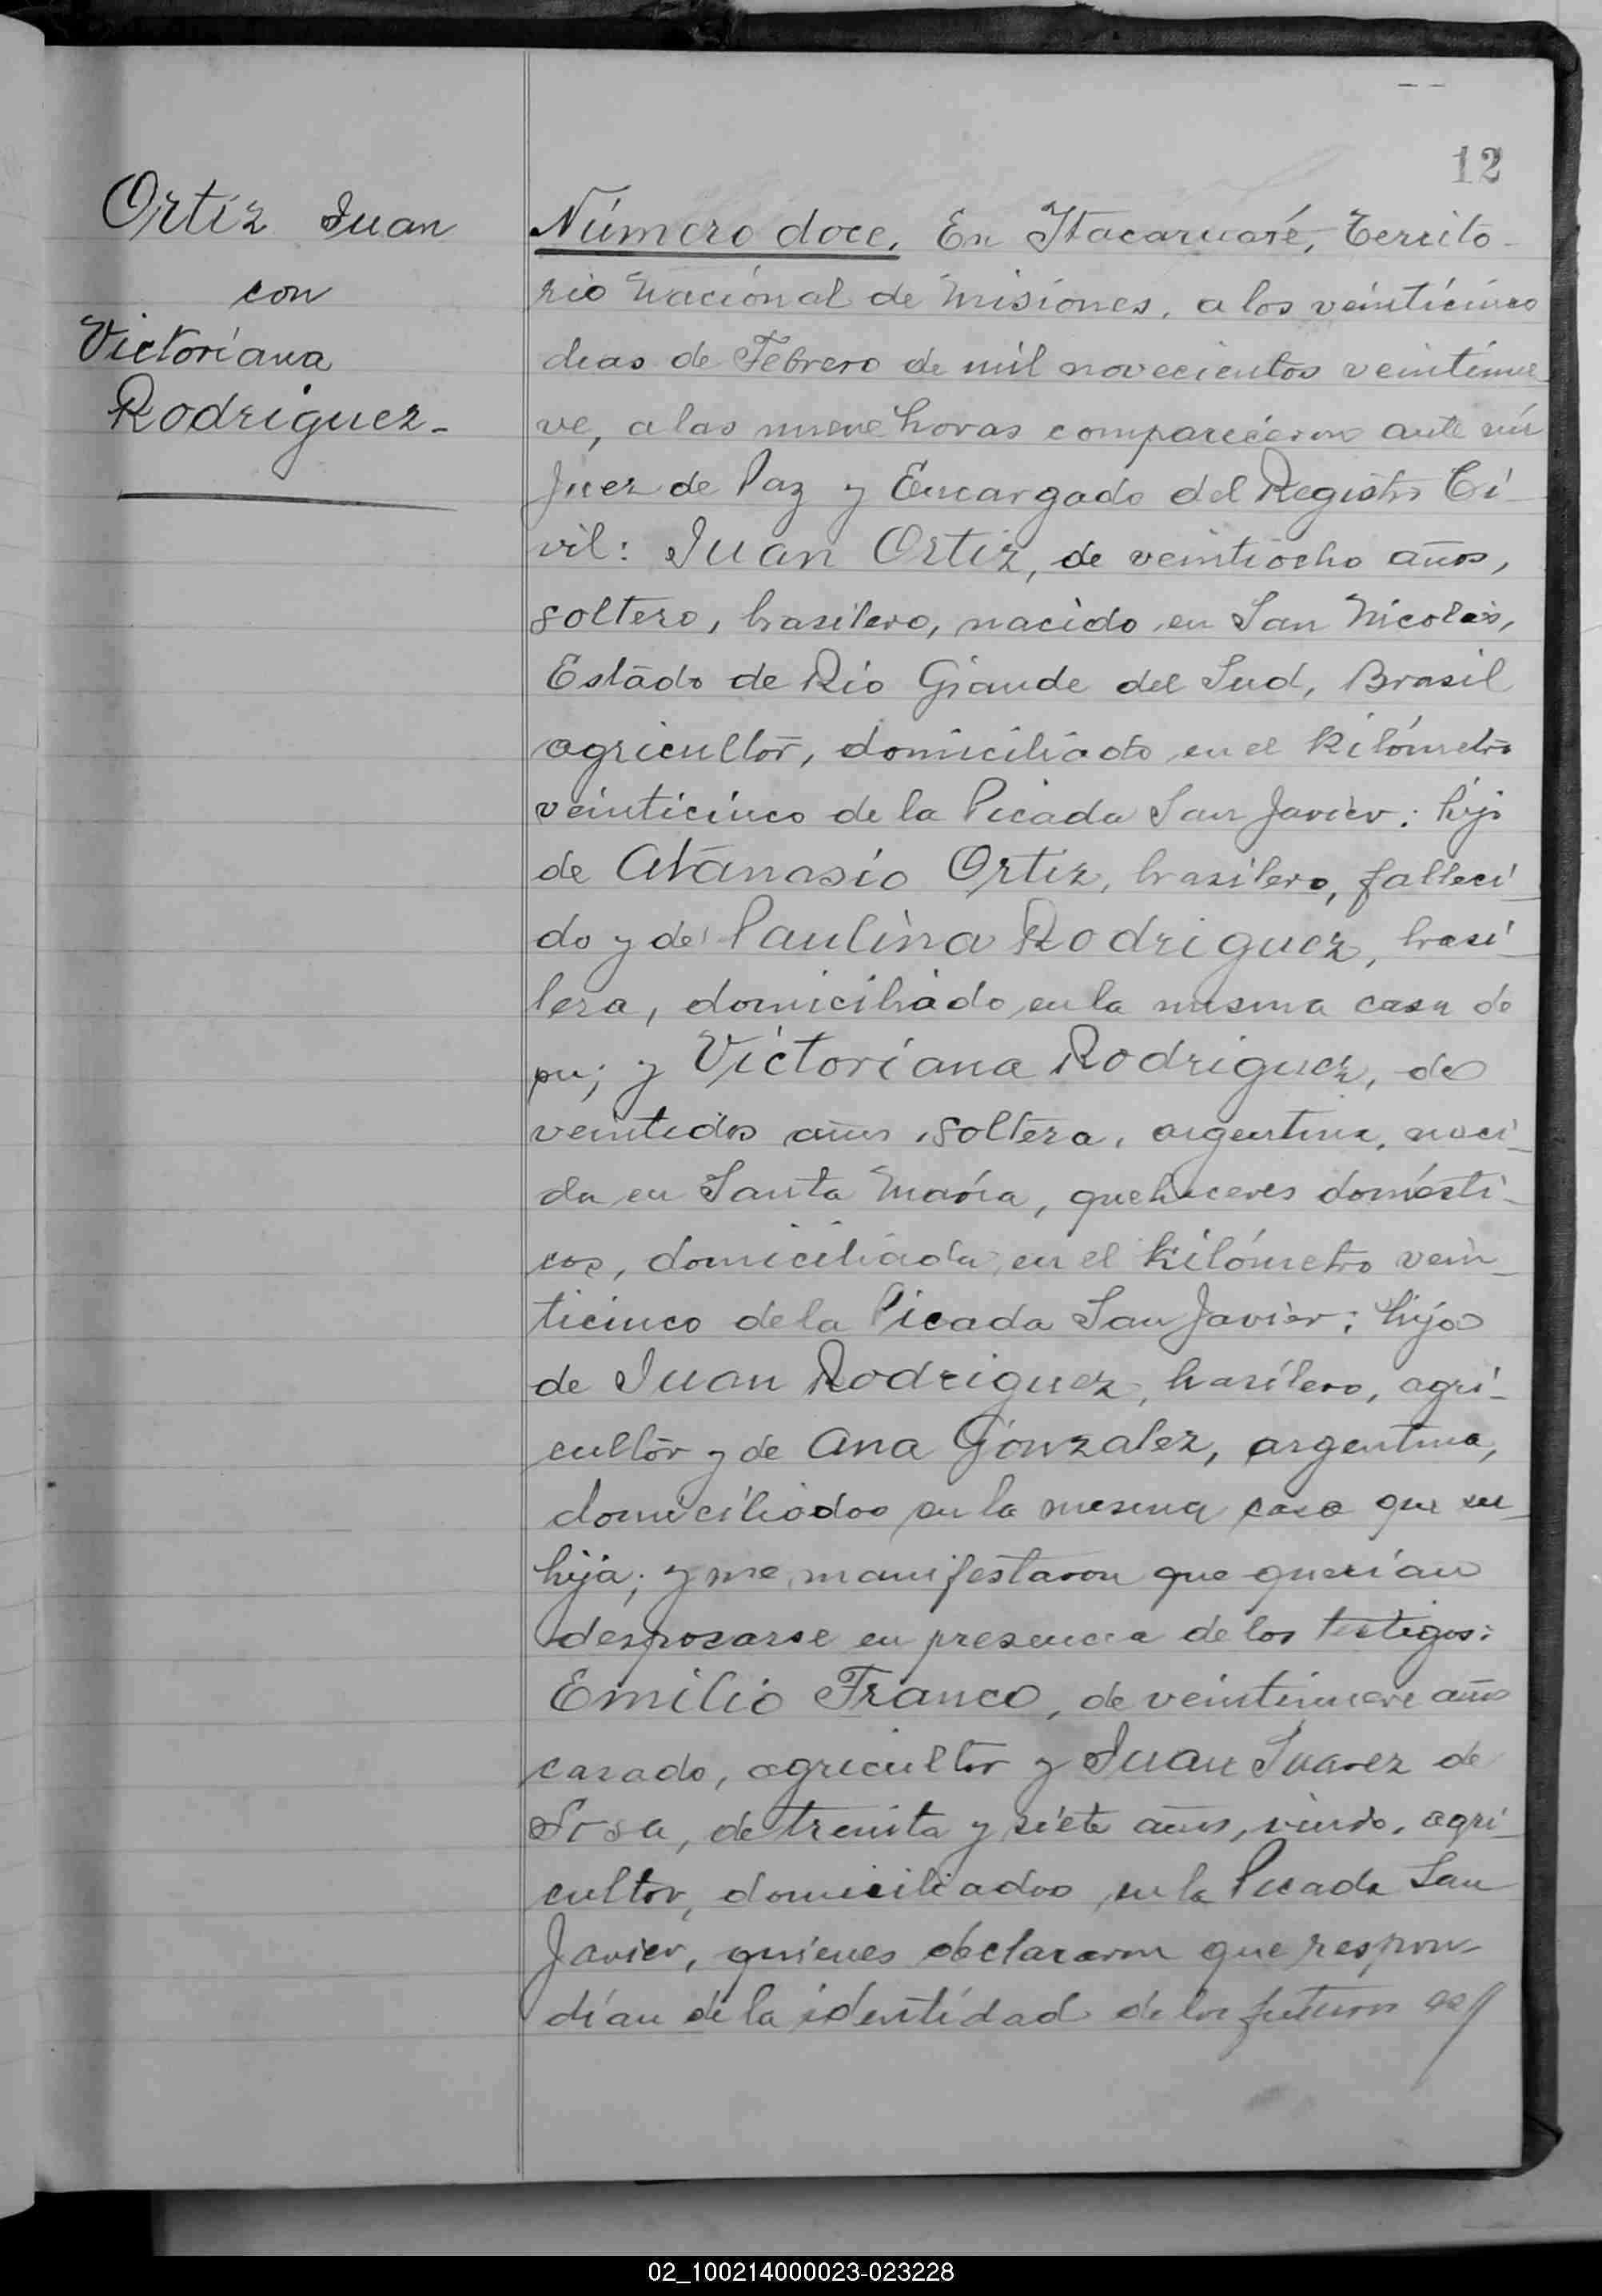 12
Ortiz Juan
con
Victoriana
Rodriguez-
Número doce. En Itacaruaré, Territo-
rio Nacional de Misiones, a los veinticinco
dias de Febrero de mil novecientos veintinue-
ve, a las nueve horas comparecieron ante mí
Juez de Paz y Encargado del Registro Ci-
vil: Juan Ortiz, de veintiocho años,
soltero, brasilero, nacido en San Nicolás,
Estado de Rio Grande del Sud, Brasil
agricultor, domiciliado en el kilómetro
veinticinco de la Picada San Javier; hijo
de Atanasio Ortiz, brasilero, falleci-
do y de Paulina Rodriguez, brasi-
lera, domiciliado en la misma casa de
y Victoriana Rodriguez, de
veintidos años, soltera, argentina, naci-
da en Santa María, quehaceres domésti-
cos, domiciliada en el kilómetro vein-
ticinco de la Picada San Javier; hija
de Juan Rodriguez, brasilero, agri-
cultor y de Ana Gonzalez, argentina,
domiciliados en la misma casa que su
hija; y me manifestaron que querían
desposarse en presencia de los testigos:
Emilio Franco, de veintinueve años
casado, agricultor y Juan Suarez de
Sosa, de treinta y siete años, viudo, agri-
cultor, domiciliados en la Picada San
Javier, quienes declararon que respon-
dían de la identidad de los futuros
02_100214000023-023228